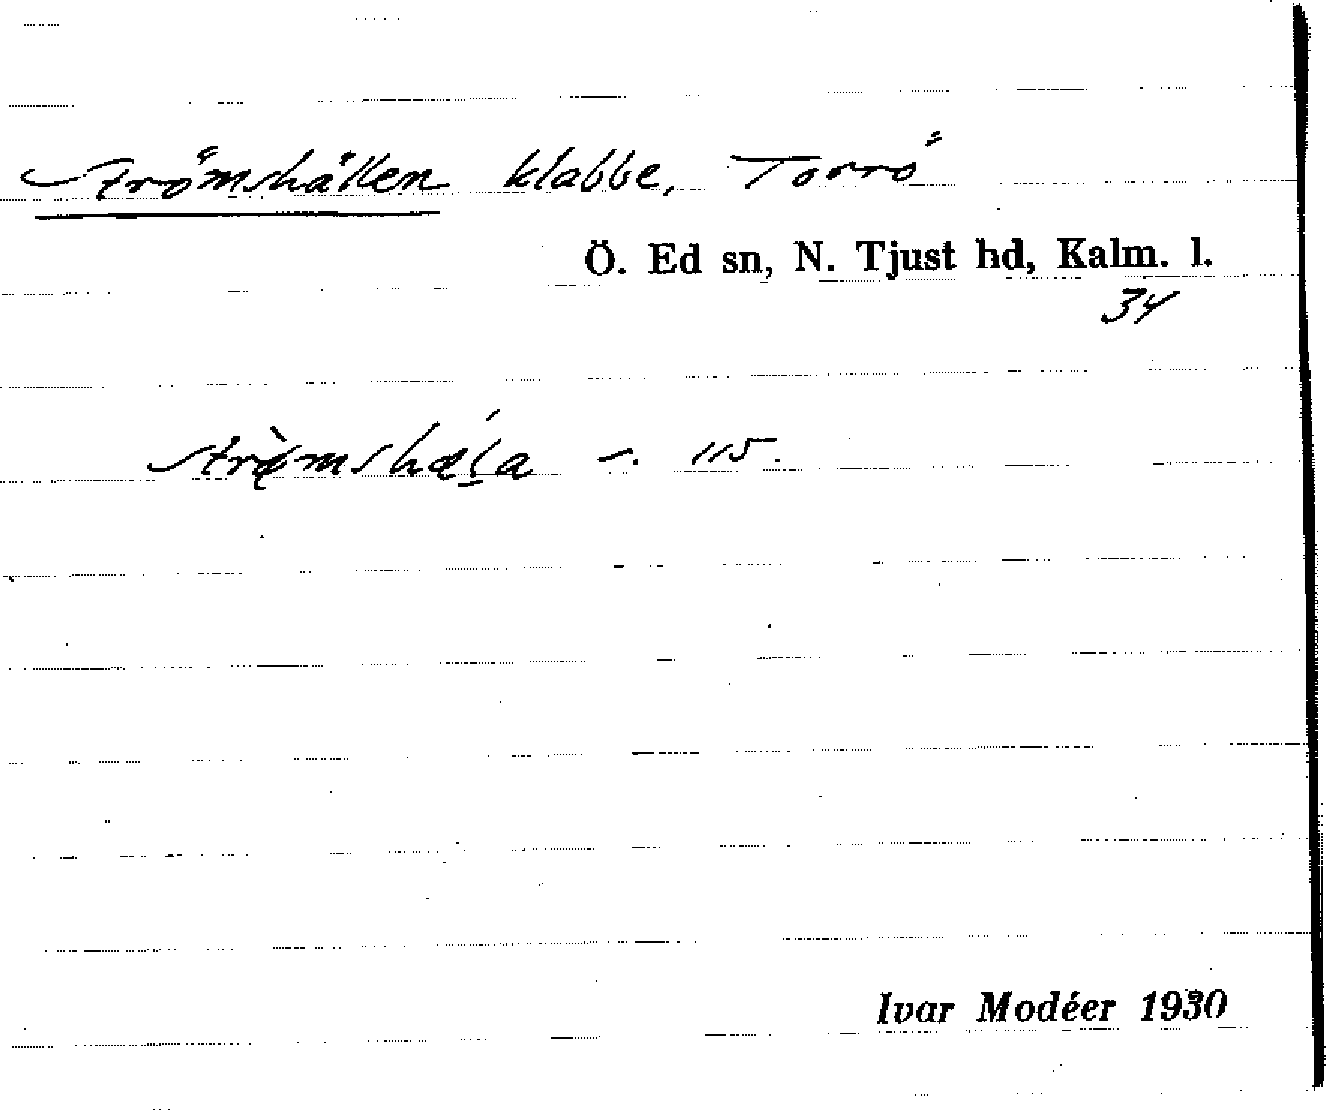 Strömshällen klabbe, Torrö
Ö. Ed sn, N. Tjust hd, Kalm. l.
34
115.
Ivar Modéer 1930